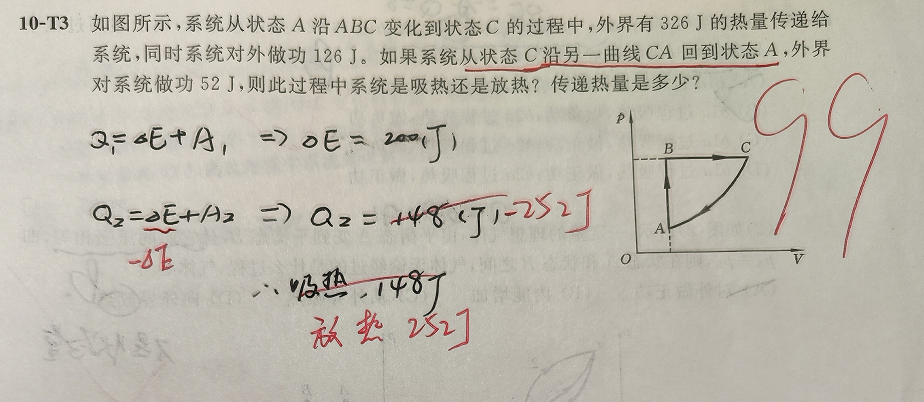 10-T3 如图所示,系统从状态 A 沿 ABC 变化到状态 C 的过程中,外界有 326 J 的热量传递给
系统,同时系统对外做功 126 J。如果系统从状态 C 沿另一曲线 CA 回到状态 A,外界
对系统做功 52 J,则此过程中系统是吸热还是放热?传递热量是多少?
Q₁=ΔE+A₁ => ΔE=200(J)
Q₂=ΔE+A₂ => Q₂=148(J) -252J
-ΔE
∴吸热.148J
放热 252J
p
B C
A
O V
99